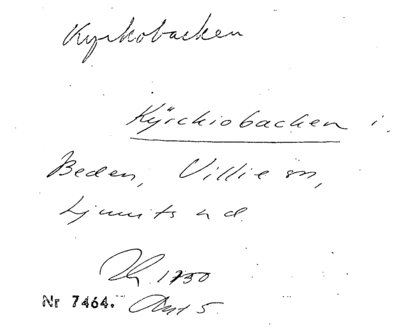 Kyrkobacken
Kÿrckiobacken i
Beden, Villie sn,
Ljunits hd
1750
Nr 7464.